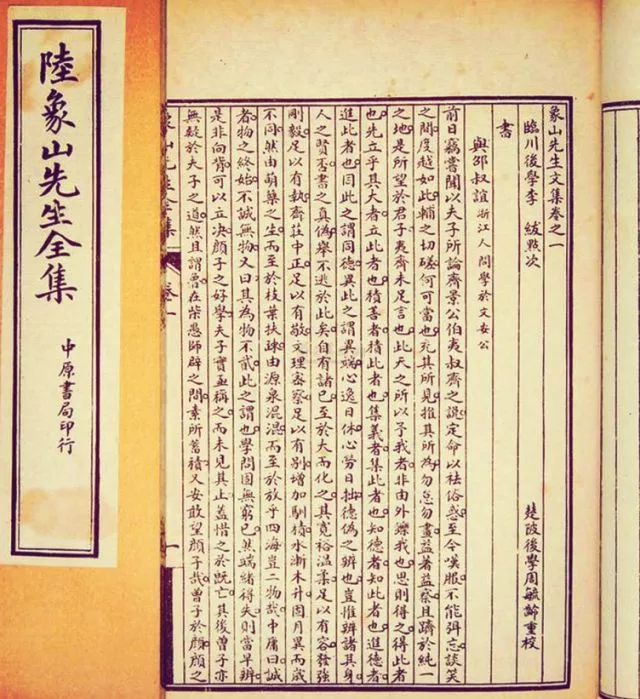 陸象山先生全集
中原書局印行
象山先生文集卷之一
臨川後學李 紱點次
楚陂後學周毓齡重校
書
與邵叔誼 浙江人問學於文安公
前日竊嘗聞以夫子所論齊景公伯夷叔齊之説定命以祛俗惑至今嘆服不能弭忘談笑
之間度越如此輔之切磋何可當也充其所見推其所為勿怠勿畫益著益察且躋於純一
之地是所望於君子夷齊未足言也此天之所以予我者非由外鑠我也思則得之得此者
也先立乎其大者立此者也積善者積此者也集義者集此者也知德者知此者也進德者
進此者也同此之謂同德異此之謂異端心逸日休心勞日拙德偽之辨也豈惟辨諸其身
人之賢否書之真偽舉不逃於此矣自有諸己至於大而化之其寬裕溫柔足以有容發強
剛毅足以有執齋莊中正足以有敬文理密察足以有別增加馴積水漸木升固月異而歲
不同然由萌蘖之生而至於枝葉扶疎由源泉混混而至於放乎四海豈二物哉中庸曰誠
者物之終始不誠無物又曰其為物不貳此之謂也學問固無窮已然端緒得失則當早辨
是非向背可以立決顔子之好學夫子實亟稱之而未見其止蓋惜之於既亡其後曾子亦
無疑於夫子之道然且謂曾在柴愚師辟之間素所蓄積又安敢望顔子哉曾子於顔顔之
象山先生全集 卷一
一